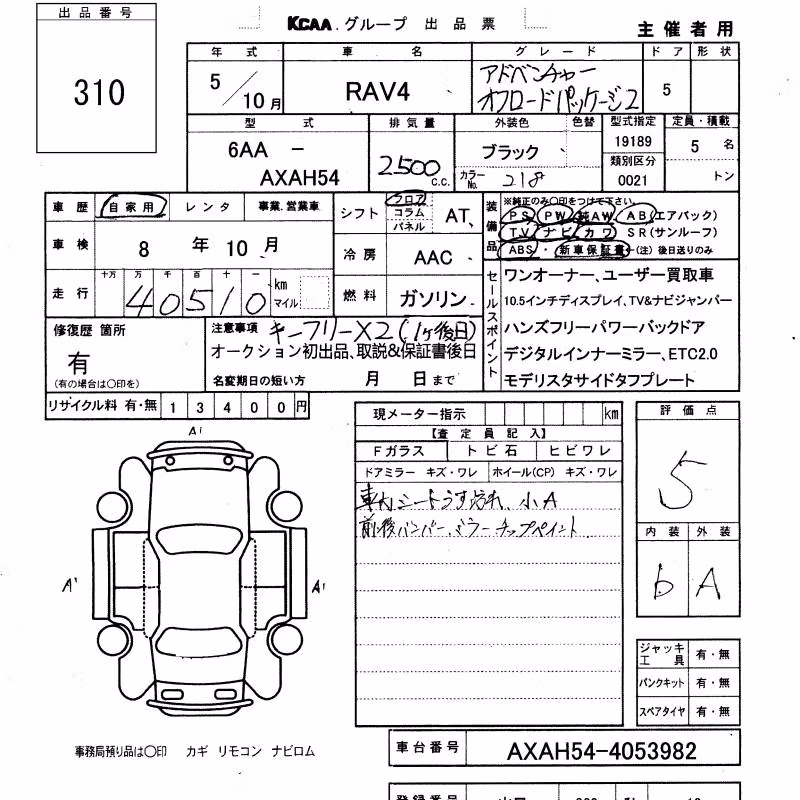 出品番号
310
KCAA グループ 出品票
主催者用
年式 車名 グレード ドア 形状
5/10月 RAV4 アドベンチャー オフロードパッケージ2 5
型式 排気量 外装色 色替 型式指定 定員・積載
6AA - AXAH54
2500 c.c.
ブラック
カラーNo. 218
19189
類別区分
0021
5 名
トン
車歴 自家用 レンタ 事業.営業車
シフト フロア コラム パネル AT
装備品 ※純正のみ〇印をつけて下さい。
PS PW 純AW AB(エアバック)
TV ナビ カワ SR(サンルーフ)
ABS・新車保証書-(注)後日送りのみ
車検 8年10月
冷房 AAC
走行 十万 万 千 百 十 一 km マイル
40510
燃料 ガソリン
セールスポイント
ワンオーナー、ユーザー買取車
10.5インチディスプレイ、TV&ナビジャンパー
ハンズフリーパワーバックドア
デジタルインナーミラー、ETC2.0
モデリスタサイドタフプレート
修復歴 箇所
有
(有の場合は〇印を)
注意事項 キーフリーX2(1ヶ後日)
オークション初出品、取説&保証書後日
名変期日の短い方 月 日まで
リサイクル料 有・無 13400円
現メーター指示 km
【査定員記入】
Fガラス トビ石 ヒビワレ
ドアミラー キズ・ワレ ホイール(CP) キズ・ワレ
車内シートうす汚れ、小A
前後バンパー、ミラーチップペイント
評価点
5
内装 外装
b A
A1
A'
A1
ジャッキ工具 有・無
パンクキット 有・無
スペアタイヤ 有・無
事務局預り品は〇印 カギ リモコン ナビロム
車台番号 AXAH54-4053982